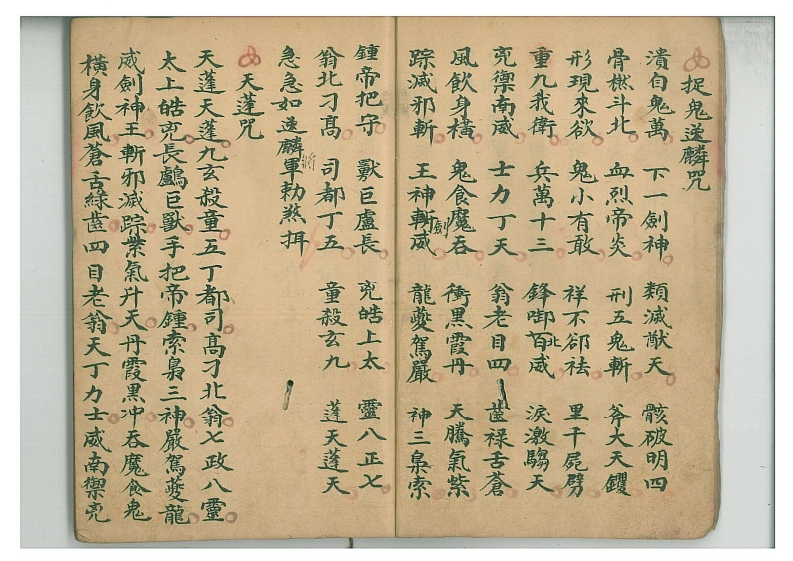 捉鬼逆麟咒
潰自鬼萬 下一劍神 類滅猷天 骸破明四
骨燃斗北 血烈帝炎 刑五鬼斬 斧大天鑊
形現來欲 鬼小有敢 祥不卻祛 里千屍劈
重九我衛 兵萬十三 鋒啣北百威 淚激騶天
兇禦南威 士力丁天 翁老目四 齒祿舌蒼
風飲身橫 鬼食魔吞 衝黑霞丹 天騰氣紫
踪滅邪斬 王神劍斬威 龍夔駕嚴 神三梟索
鍾帝把守 獸巨盧長 兇皓上太 靈八正七
翁北刁髙 司都丁五 童殺玄九 蓬天蓬天
急急如逆麟將軍勅煞揖
天蓬咒
天蓬天蓬九玄殺童五丁都司髙刁北翁七政八靈
太上皓兇長鸕巨獸手把帝鍾索梟三神嚴駕夔龍
威劍神王斬邪滅踪紫氣升天丹霞黑冲吞魔食鬼
橫身飲風蒼舌綠齒四目老翁天丁力士威南禦兇